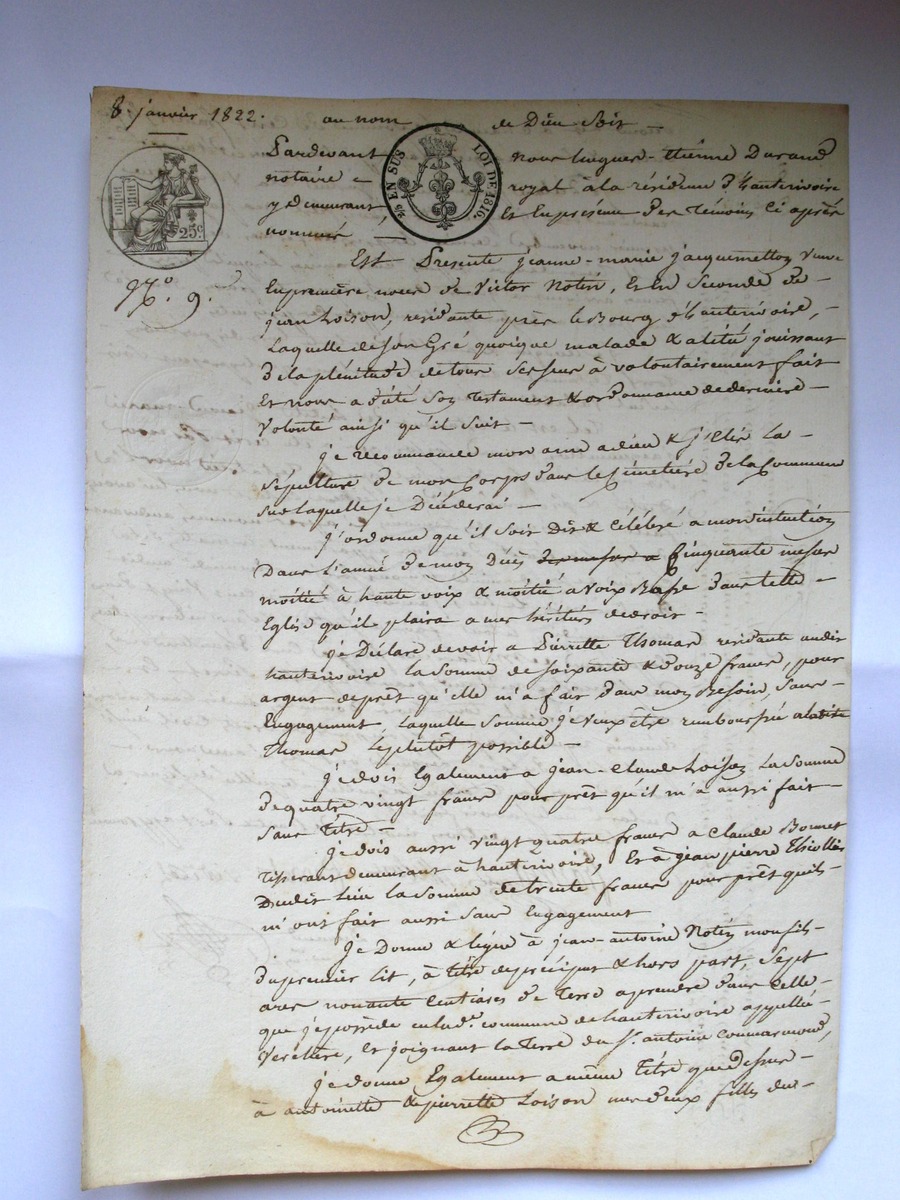 8 janvier 1822.
au nom de Dieu Soit
Pardevant nous hugues-Etienne Durand
notaire royal à la résidence d'hauterivoire
y demeurant Et En présence des témoins Ci après
nommés
EN SUS LOI DE 1816.
25c
No. 9.
Est Présente jeanne-marie jacquemetton veuve
En première noces de Victor Notin, Et En Seconde de
jean Loison, résidante près le Bourg d'hauterivoire,
Laquelle de son Gré quoique malade & alitée jouissant
de la plénitude de tous Ses Sens à volontairement fait
Et nous a dicté Son Testament & ordonnance de dernière
Volonté ainsi qu'il Suit
je recommande mon ame a dieu & j'Elis La
Sépulture de mon Corps dans le Cimetière de la Commune
Sur laquelle je Décéderai
j'ordonne qu'il Soit Dit & Célébré a mon intention
Dans L'année de mon Décès Cinquante messes
moitié à haute voix & moitié a Voix Basse Dans telle
Eglise qu'il plaira a mes héritiers
je Déclare devoir a Pierrette Thomas residante audit
hauterivoire La Somme de Soixante & douze francs, pour
argent de prêt qu'elle m'a fait Dans mon Besoin, Sans
Engagement Laquelle Somme je veux être remboursée a ladite
Thomas Le plutôt possible
je dois Egalement a jean-Claude Loison La Somme
de quatre vingt francs pour prêt qu'il m'a aussi fait
Sans Titre
je dois aussi vingt quatre francs a Claude Bonnet
Tisserant demeurant à hauterivoire, Et à jean pierre Thiollier
Dudit Lieu la Somme de trente francs pour prêt quils
m'ont fait aussi Sans Engagement
je Donne & lègue à jean-antoine Notin mon fils
du premier lit, à Titre de préciput & hors part, Sept
ares nonante Centiares de Terre a prendre dans Celle
que je possède en lade. commune de hauterivoire appellée
et joignant la Terre du Sr. antoine Coumarmond,
je donne Egalement a même Titre que Dessus
à antoinette & pierrette Loison mes deux filles du